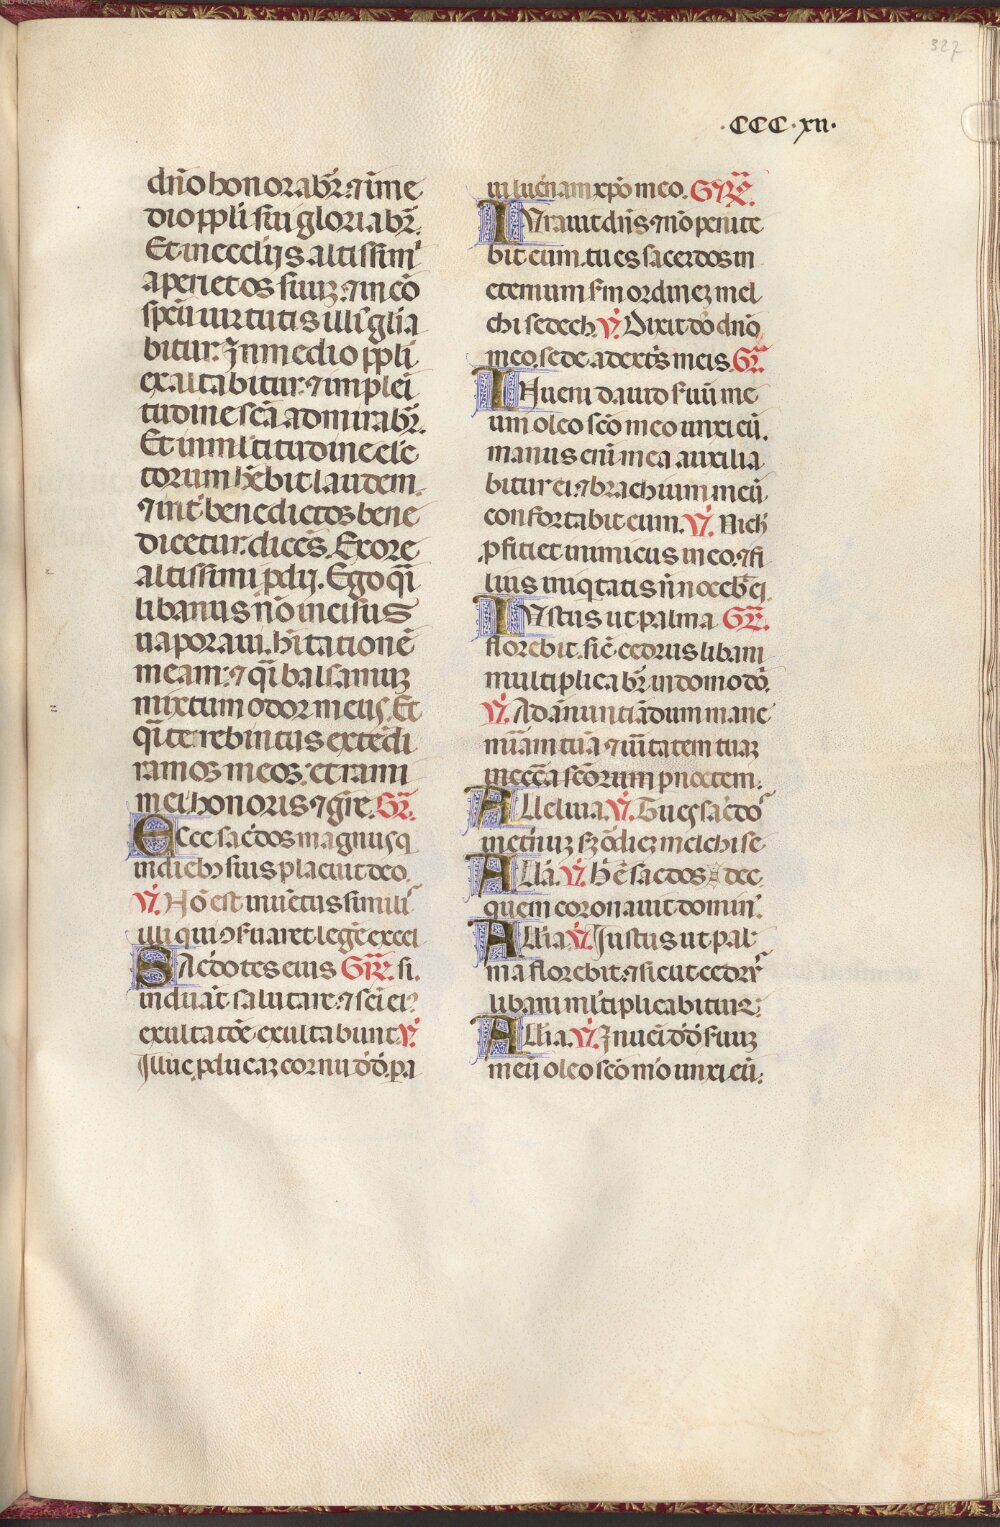 327
·CCC·xii·
dño honorabr̃. ⁊ ĩ me
dio ppłi sui gloriabr̃.
Et in ecclijs altissimi
aperiet os suuz. ⁊ in cõ
spcũ uirtutis illiꝰ glīa
bitur. In medio ppłi
exaltabitur. ⁊ in pleni
tudine scā admirabr̃.
Et in multitudine elc̄
torum hēbit laudem.
⁊ int̄ benedictos bene
dicetur. dicēs. Ex ore
altissimi pdij. Ego qͣi
libanus nõ incisus
uaporaui. hītationē
meam. ⁊ qͣi balsamuz
mixtum odor meus. Et
qͣi terebintus extēdi
ramos meos. et rami
mei honoris ⁊ gr̄e. Gr̃.
Ecce sac̄dos magnus q
in diebꝫ suis placuit deo.
℣. Nõ est inuētus similis
illi qui ꝯseruaret legē excel
Sac̄dotes eius Gr̃. si.
induāt salutare. ⁊ sc̄i eiꝰ
exultatõe exultabunt ℣.
Illuc pducaz cornu dd̄. pa
ui lucñam xp̄o meo. Gr̃.
Iurauit dñs ⁊ nõ penite
bit eum. tu es sacerdos in
eternum sm̄ ordinez mel
chisedech. ℣. Dixit dõ dñõ
meo. sede a dextr̄s meis. Gr̃.
Inueni dauid seruũ me
um oleo scõ meo unxi eũ.
manus eni mea auxilia
bitur ei. ⁊ brachium meũ
confortabit eum. ℣. Nich̄
pficiet inimicus in eo. ⁊ fi
lius iniqtatis ñ nocebit ei.
Iustus ut palma Gr̃.
florebit. sic̄ cedrus libani
multiplicabr̃ in domo dõ.
℣. Ad ānuntiādum mane
mīam tuā ⁊ ũitatem tuaz
in ecc̄a scõrum p noctem.
Alleluia. ℣. Tu es sac̄dos
in et̄nuz sz ōdiez melchise
Allā. ℣. hic̄ sac̄dos dec.
quem coronauit dominꝰ.
Allīa ℣. Iustus ut pal
ma florebit. ⁊ sicut cedrꝰ
libani ml̄tiplicabitur.
Allīa. ℣. Inuēi dd̄ seruuz
meũ oleo scõ mo unxi eũ.